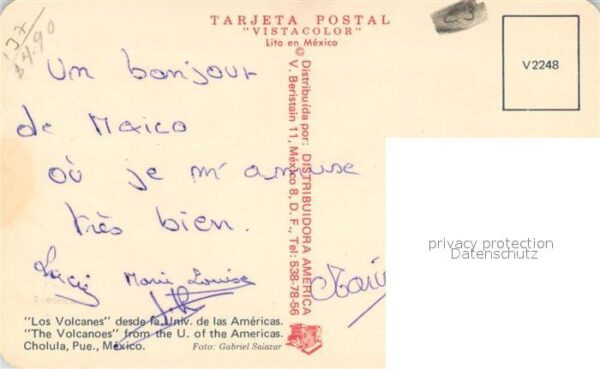 TARJETA POSTAL
"VISTACOLOR"
Lito en México
V2248
$4.90
Un bonjour
de Mexico
où je m'amuse
très bien.
Marie Louise
© Distribuida por: DISTRIBUIDORA AMERICA
V. Beristain 11, México 8, D. F., Tel: 538-78-56
privacy protection
Datenschutz
"Los Volcanes" desde la Univ. de las Américas.
"The Volcanoes" from the U. of the Americas.
Cholula, Pue., México.
Foto: Gabriel Salazar